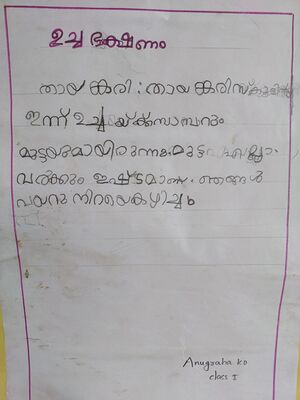 ഉച്ച ഭക്ഷണം
തായങ്കരി : തായങ്കരി സ്കൂളിൽ
ഇന്ന് ഉച്ചയ്ക്ക് സാമ്പാറും
മുട്ടയുമായിരുന്നു. മുട്ട എല്ലാ-
വർക്കും ഇഷ്ടമാണ്. ഞങ്ങൾ
വയറു നിറയെ കഴിച്ചു
Anugraha KD
class I